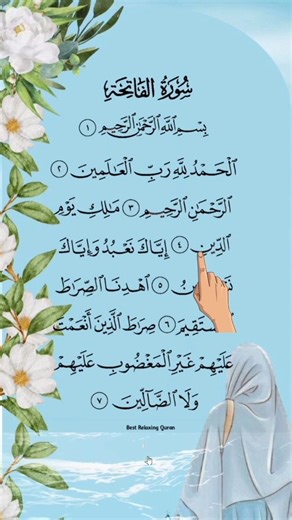 سُورَةُ الفَاتِحَةِ
بِسْمِ اللَّهِ الرَّحْمَٰنِ الرَّحِيمِ ١
الْحَمْدُ لِلَّهِ رَبِّ الْعَالَمِينَ ٢
الرَّحْمَٰنِ الرَّحِيمِ ٣ مَالِكِ يَوْمِ
الدِّينِ ٤ إِيَّاكَ نَعْبُدُ وَإِيَّاكَ
٥ اهْدِنَا الصِّرَاطَ
٦ صِرَاطَ الَّذِينَ أَنْعَمْتَ
عَلَيْهِمْ غَيْرِ الْمَغْضُوبِ عَلَيْهِمْ
وَلَا الضَّالِّينَ ٧
Best Relaxing Quran